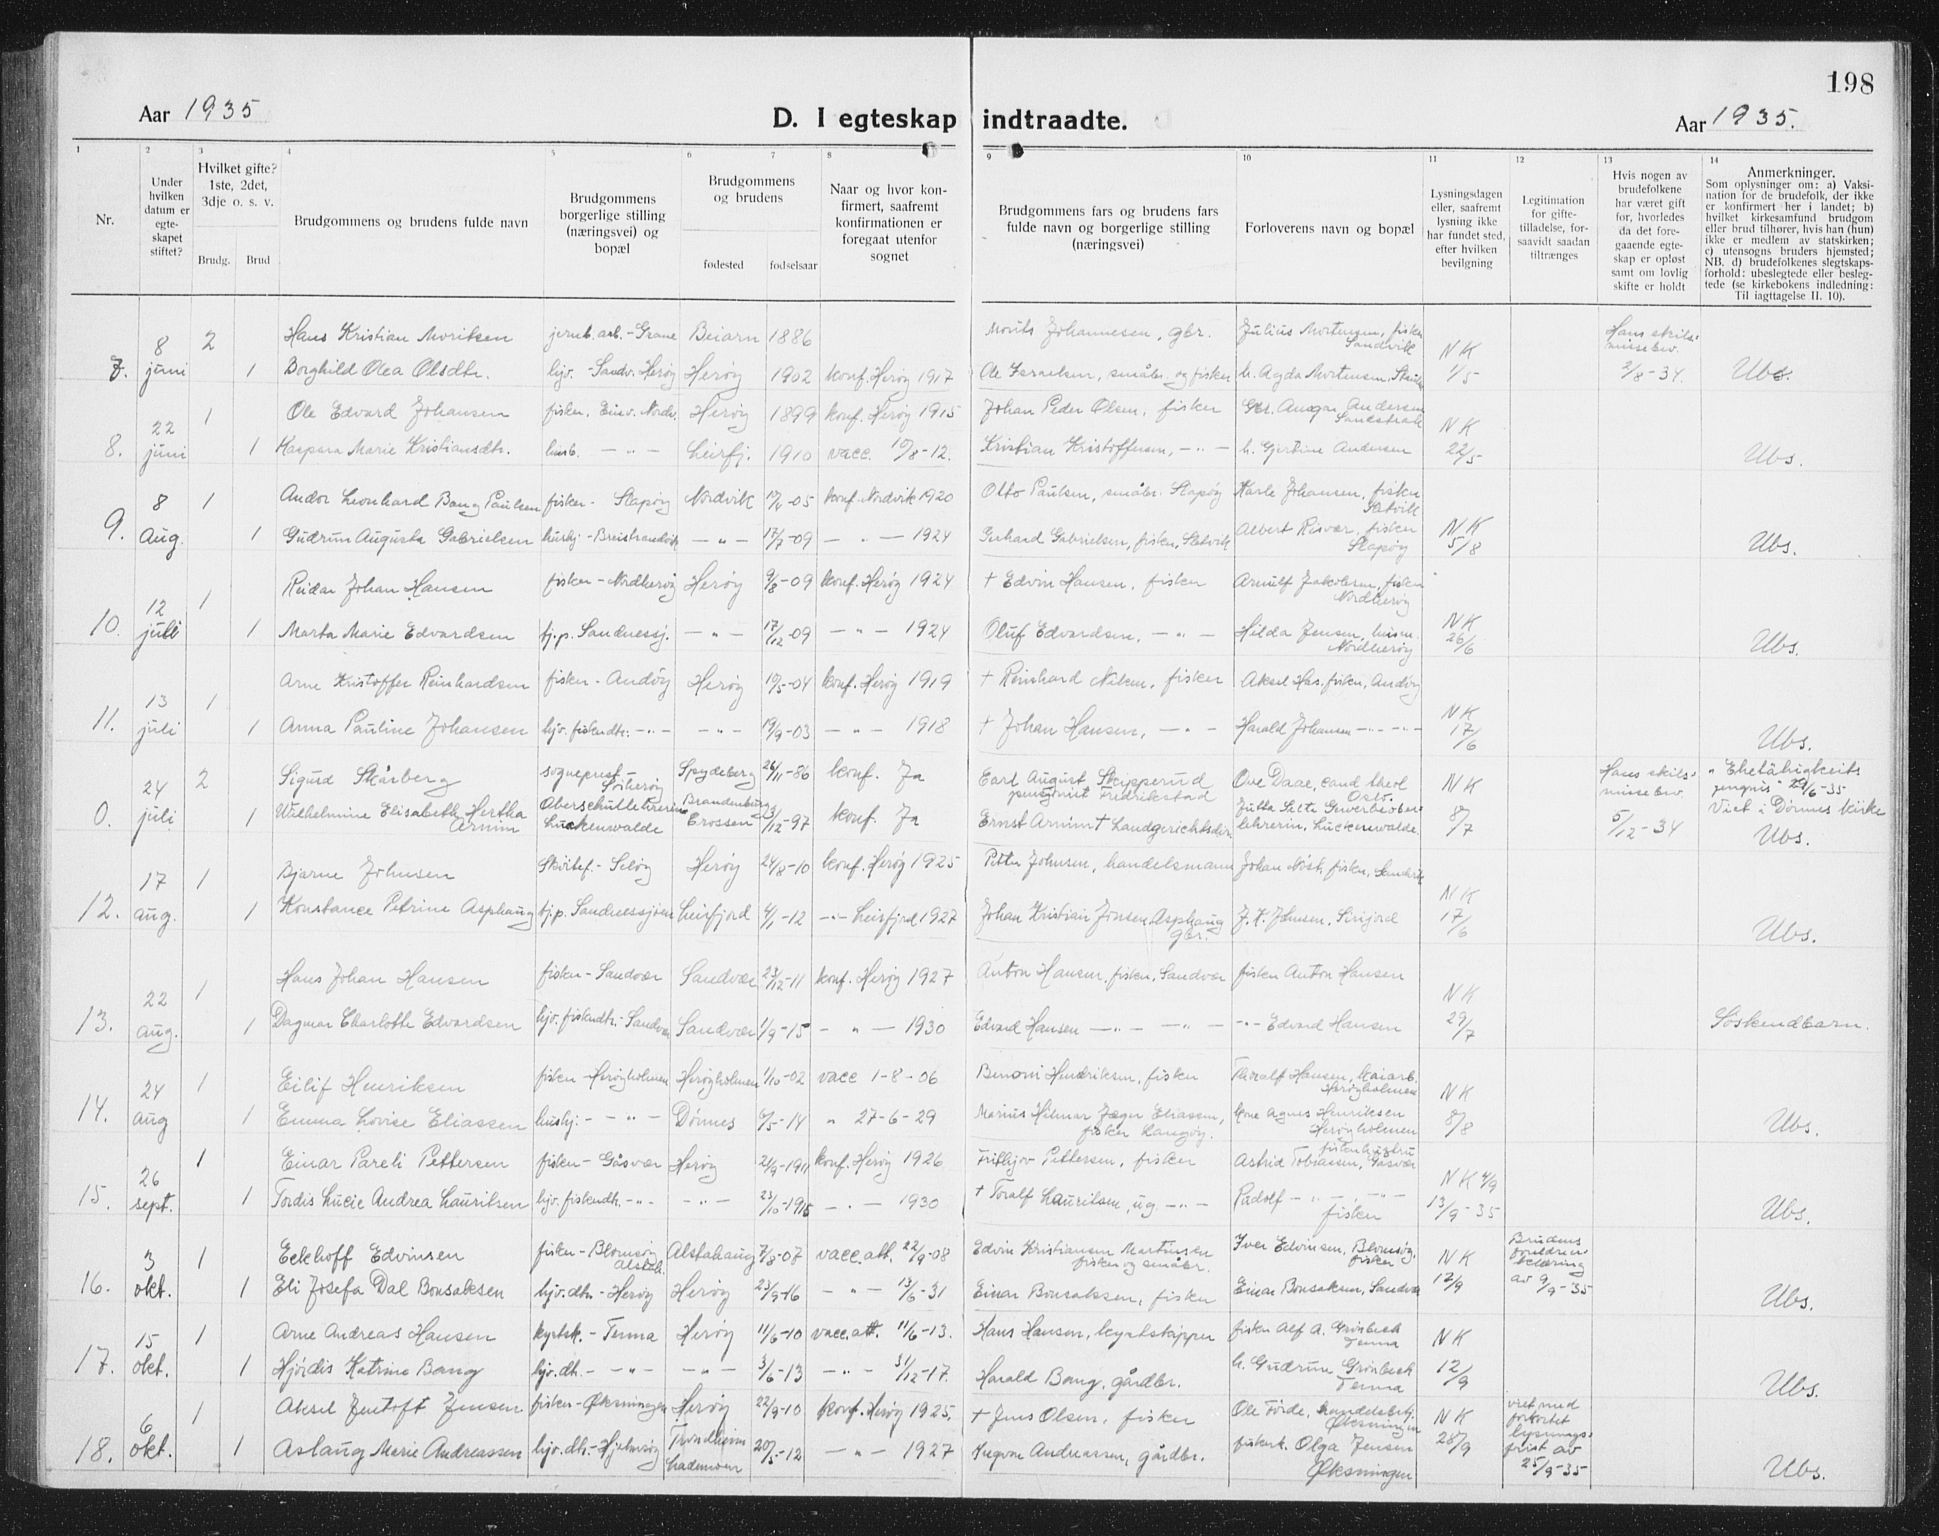 198
Aar 1935
D. I egteskap indtraadte.
Aar 1935.
1 2 3 4 5 6 7 8 9 10 11 12 13 14
Nr.
Under hvilken datum er egte- skapet stiftet?
Hvilket gifte? 1ste, 2det, 3dje o. s. v.
Brudg. Brud
Brudgommens og brudens fulde navn
Brudgommens borgerlige stilling (næringsvei) og bopæl
Brudgommens og brudens
fødested fødselsaar
Naar og hvor kon- firmert, saafremt konfirmationen er foregaat utenfor sognet
Brudgommens fars og brudens fars fulde navn og borgerlige stilling (næringsvei)
Forloverens navn og bopæl
Lysningsdagen eller, saafremt lysning ikke har fundet sted, efter hvilken bevilgning
Legitimation for gifte- tilladelse, for- saavidt saadan tiltrænges
Hvis nogen av brudefolkene har været gift før, hvorledes da det fore- gaaende egte- skap er opløst samt om lovlig skifte er holdt
Anmerkninger.
Som oplysninger om: a) Vaksi- nation for de brudefolk, der ikke er konfirmert her i landet; b) hvilket kirkesamfund brudgom eller brud tilhører, hvis han (hun) ikke er medlem av statskirken; c) utensogns bruders hjemsted; NB. d) brudefolkenes slegtskaps- forhold: ubeslegtede eller besleg- tede (se kirkebokens indledning: Til iagttagelse II. 10).
8 2 Hans Kristian Moriksen jernb.arb. - Grane Beiarn 1886 Morits Johannesen, gbr. Julius Mortensen, fisker Sandvik NK Hans skils- missebev.
7. juni 1 Borghild Olea Olsdtr. hjv. - Sandv. Herøy Herøy 1902 konf. Herøy 1917 Ole Israelsen, småbr. og fisker h. Agda Mortensen 1/5 2/8-34. Ubs.
22 1 Ole Edvard Johansen fisker, Einv. Nordv. Herøy 1899 konf. Herøy 1915 Johan Peder Olsen, fisker Gbr. Ansgar Andersen NK
8. juni 1 Kaspara Marie Kristiansdtr. husb. - " - Leirfj. 1910 vacc. 10/8-12. Kristian Kristoffersen, - " - h. Gjertine Andersen 22/5 Ubs.
8 1 Andor Leonhard Bang Paulsen fisker - Slapøy Nordvik 17/4-05 konf. Nordvik 1920 Otto Paulsen, småbr. Slapøy Karle Johansen, fisker Sletvik NK
9. Aug. 1 Gudrun Augusta Gabrielsen hushj. - Breistrandvik - " - 17/7-09 - " - 1924 Gerhard Gabrielsen, fisker, Sletvik Albert Risvær, fisker Slapøy 5/8 Ubs.
12 1 Reidar Johan Hansen fisker - Nordherøy Herøy 9/8-09 konf. Herøy 1924 + Edvin Hansen, fisker Arnulf Jakobsen, fisker Nordherøy NK
10. juli 1 Marta Marie Edvardsen tj.p. Sandnessj. - " - 17/12-09 - " - 1924 Oluf Edvardsen, - " - Hilda Jensen, husm. Nordherøy 26/6 Ubs.
13 1 Arne Kristoffer Reinhardsen fisker - Andøy Herøy 10/5-04 konf. Herøy 1919 + Reinhard Nilsen, fisker Aksel Has. fisker, Andøy NK
11. juli 1 Anna Pauline Johansen hjv. fiskerdtr. - " - - " - 19/9-03 - " - 1918 + Johan Hansen, - " - Harald Johansen - " - - " - 17/6 Ubs.
24 2 Sigurd Skårberg sogneprest - Sørherøy Spydeberg 26/11-86 konf. Ja Carl August Skipperud pensjonist Fredrikstad Ove Daae, cand theol Oslo. NK Hans skils- missebev. " Ehefähigkeits zeugnis" 29/6-35
0. juli 1 Wilhelmine Elisabeth Hertha Arnim Oberschullehrerin Luckenwalde Brandenburg Crossen 3/12-97 konf. Ja Ernst Arnim + Landgerichtsdir. Jutta Selte Gewerbeober- lehrerin, Luckenwalde. 8/7 5/12-34 Viet i Dønnes kirke Ubs.
17 1 Bjarne Johnsen Skvitef. - Seløy Herøy 24/8-10 konf. Herøy 1925 Petter Johnsen, handelsmann Johan Nøst, fisker, Sandvik NK
12. aug. 1 Konstance Petrine Asphaug tj.p. Sandnessjøen Leirfjord 4/1-12 - " - Leirfjord 1927 Johan Kristian Jonsen Asphaug gbr. J. K. Johnsen, Sinjord 17/6 Ubs.
22 1 Hans Johan Hansen fisker - Sandvær Sandvær 23/12-11 konf. Herøy 1927 Anton Hansen, fisker, Sandvær fisker Anton Hansen NK
13. aug. 1 Dagmar Charlotte Edvardsen hjv. fiskerdtr. - Sandvær Sandvær 1/9-15 - " - 1930 Edvard Hansen - " - - " - - " - Edvard Hansen 29/7 Søskendbarn.
24 1 Eilif Henriksen fisker - Herøyholmen Herøyholmen 1/10-02 vacc 1-8-06 Benoni Hendriksen, fisker Thoralf Hansen, kaiarb. Herøyholmen NK
14. aug 1 Emma Lovise Eliassen hushj: - " - Dønnes 6/5-14 " 27-6-29 Marius Hilmar Jæger Eliassen, fisker Langøy. kone Agnes Henriksen Herøyholmen 8/8 Ubs.
26 1 Einar Pareli Pettersen fisker - Gåsvær Herøy 21/9-1911 konf. Herøy 1926 Fritjov Pettersen, fisker Astrid Tobiassen, fiskerhustru Gåsvær NK 4/9
15. sept. 1 Tordis Lucie Andrea Lauritsen hjv. fiskerdtr. - " - - " - 23/10-1915 - " - 1930 + Toralf Lauritsen, ug. - " - Radolf - " - - " - fisker 13/9-35 Ubs.
3 1 Eckhoff Edvinsen fisker - Blomsøy Alstah. Alstahaug 7/8-07 vacc.att. 22/9-08 Edvin Kristiansen Martinsen fisker og småbr. Iver Edvinsen, Blomsøy, fisker NK Brudens foreldrer- klæring
16. okt. 1 Eli Josefa Dal Bonsaksen hjv.dtr. - Herøy Herøy 23/9-16 - " - 13/6-31 Einar Bonsaksen, fisker Einar Bonsaksen, Sandvær 12/9 av 9/9-35 Ubs.
15 1 Arne Andreas Hansen kystsk. - Tenna Herøy 11/6-10 vacc.att. 11/6-13. Hans Hansen, kystskipper fisker Alf A. Grønbech Tenna NK
17. okt. 1 Hjørdis Katrine Bang hjv.dtr. - " - - " - 3/6-13 - " - 31/12-17. Harald Bang, gårdbr. h. Gudrun Grønbech Tenna 12/9 Ubs.
6 1 Aksel Zentoft Jensen fisker - Øksningen Herøy 22/9-10 konf. Herøy 1925, + Jens Olsen, fisker Ole Förde, handelsbetj. Øksningen NK viet med forkortet
18. okt. 1 Aslaug Marie Andreassen hjv.dtr. - Hjelmsøy Trondheim Lademoen 20/5-12 - " - 1927 Yngvar Andreassen, gårdbr. fiskerk. Olga Jensen Øksningen 28/9 lysnings- frist av 25/9-35 Ubs.